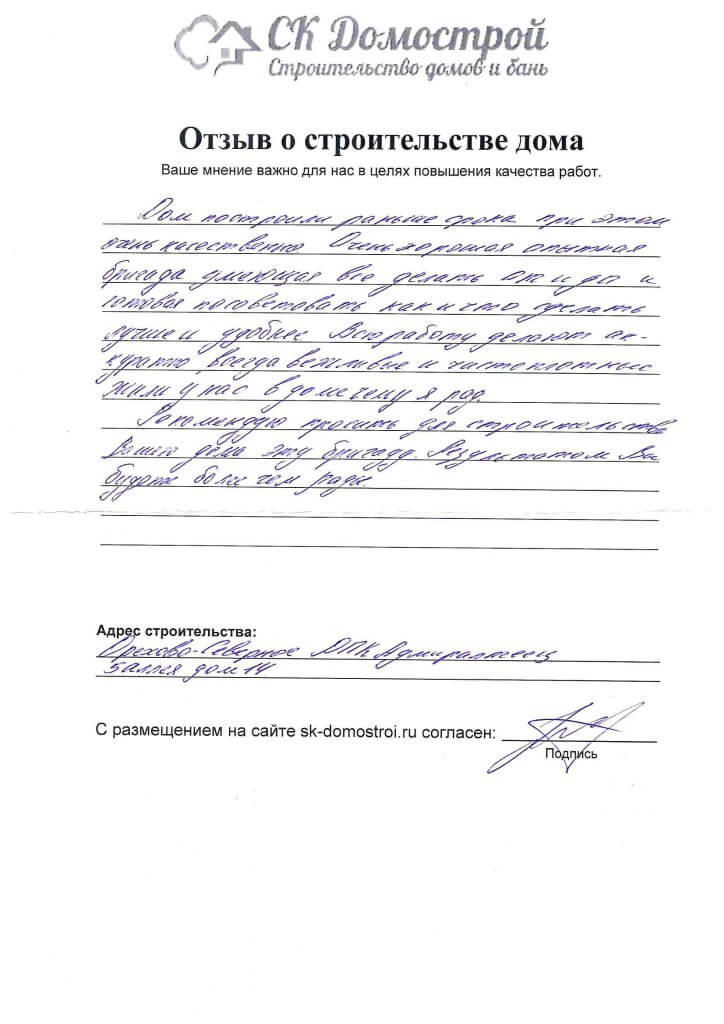 СК Домострой
Строительство домов и бань
Отзыв о строительстве дома
Ваше мнение важно для нас в целях повышения качества работ.
Дом построили раньше срока при этом
очень качественно. Очень хорошая опытная
бригада умеющая все делать от и до и
готовая посоветовать как и что сделать
лучше и удобнее. Всю работу делают ак-
куратно всегда вежливые и чистоплотные
жили у нас в доме чему я рад.
Рекомендую просить для строительства
Вашего дома эту бригаду. Результатом Вы
будете более чем рады.
Адрес строительства:
Орехово-Северное ДПК Адмиралтеец
5 аллея дом 14
С размещением на сайте sk-domostroi.ru согласен:
Подпись